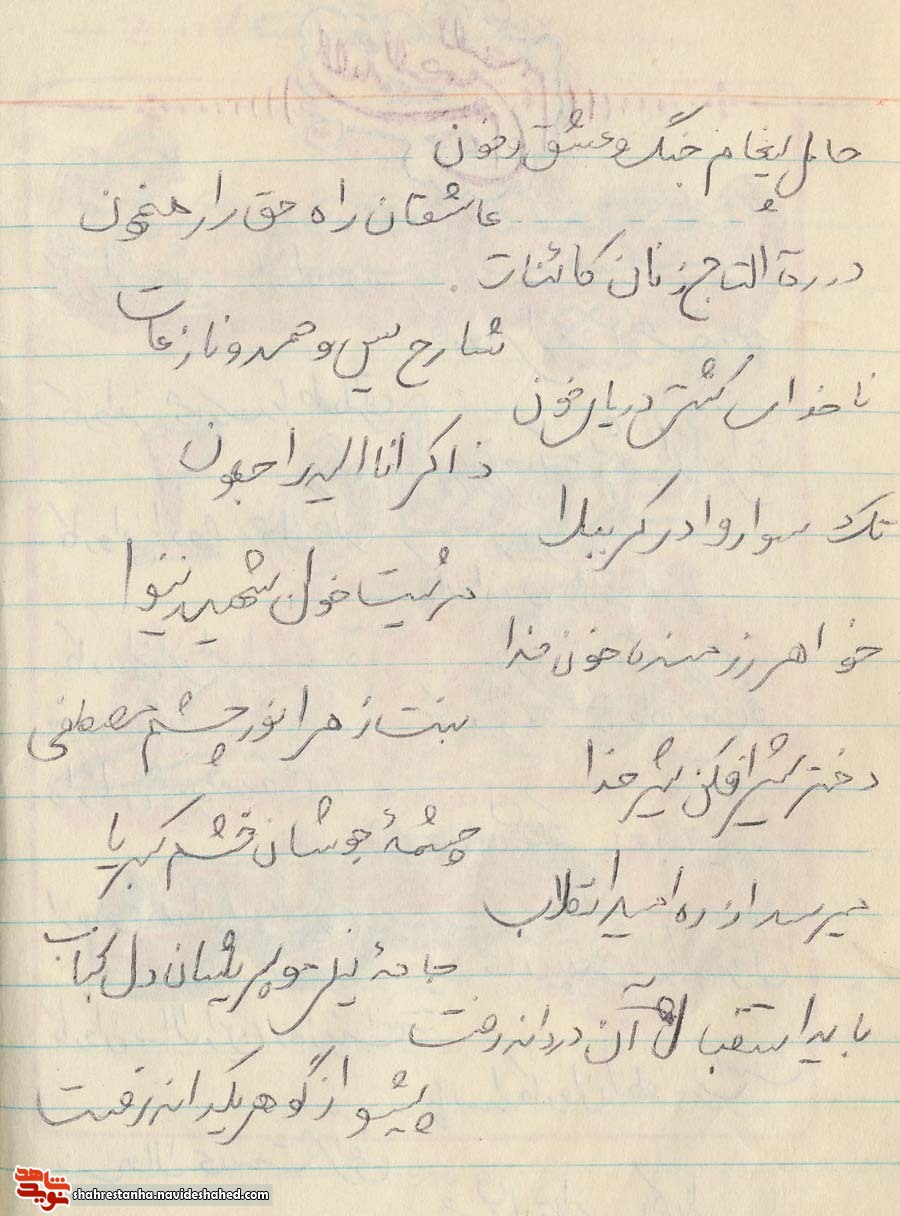 حامل پیغام جنگ و عشق و خون
عاشقان راه حق را رهنمون
درة التاج زنان کائنات
شارح یس و حمد و نازعات
ناخدای کشتی دریای خون
ذاکر انا الیه راجعون
تک سوار وادی کربلا
مرثیت خوان شهید نینوا
خواهر رزمنده خون خدا
بنت زهرا نور چشم مصطفی
دختر شیرافکن شیر خدا
چشمهٔ جوشان خشم کبریا
میرسد از ره امیر انقلاب
جامهٔ نیلی مو پریشان دل کباب
باید استقبال آن دردانه رفت
پیشواز گوهر یکدانه رفت
شاهد
نوید
shahrestanha.navideshahed.com